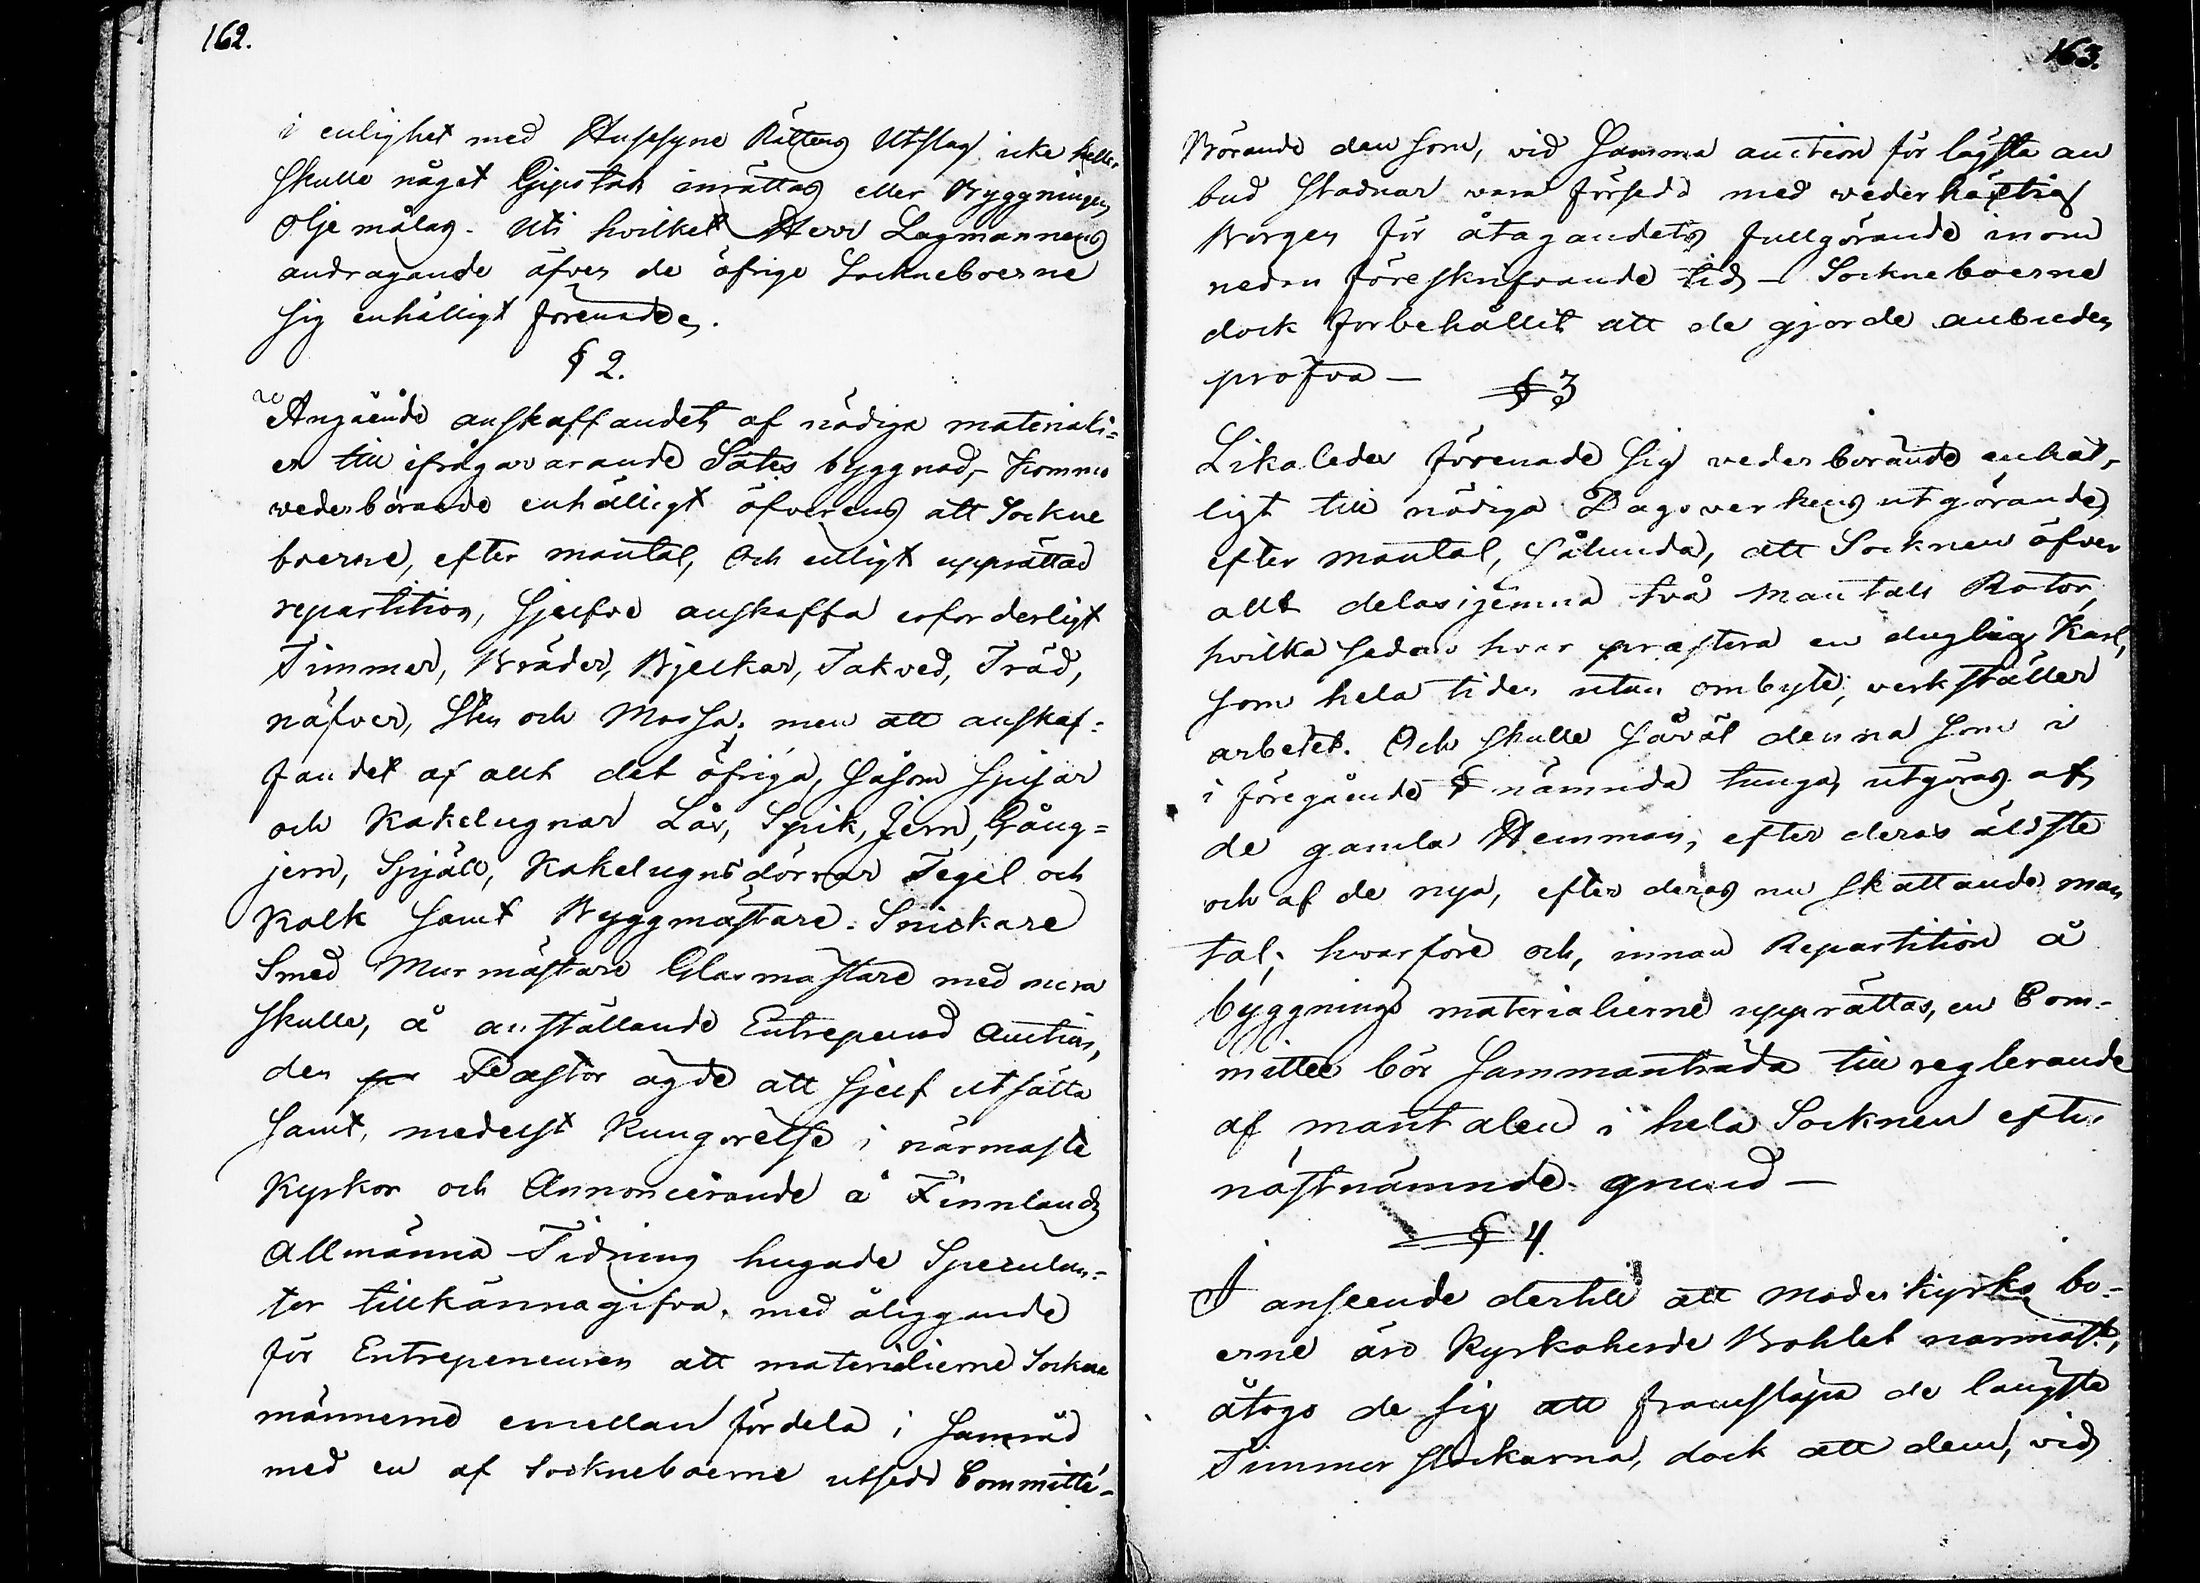 162.
i enlighet med Husesyne Rättens Utslag icke heller
skulle något Gipstak inrättas eller Byggningen
Oljemålas. Uti hvilket Herr Lagmannens
andragande äfven de öfrige Sockneboerne
sig enhälligt förenade.
§ 2.
Angående anskaffandet af nödiga materiali=
er till ifrågavarande Sätes byggnad, kommo
vederbörande enhälligt öfverens att Sockne
boerne, efter mantal, Och enligt upprättad
repartition, sjelfve anskaffa erforderligt
Timmer, Bräder, Bjelkar, Takved, Träd,
näfver, Sten och Mossa, men att anskaf=
fandet af allt det öfriga, såsom spisar
och Kakelugnar Lås, Spik, Jern, Gång=
jern, Spjäll, Kakelugnsdörrar Tegel och
Kalk samt Byggmästare Snickare
Smed Murmästare Glasmästare med mera
skulle, å anställande Entreprenad Auction,
den Pastor ägde att sjelf utsätta
samt, medelst Kungörelse i närmaste
Kyrkor och Annoncerande å Finnlands
Allmänna Tidning hugade Speculan=
ter tillkännagifva, med åliggande
för Entrepeneuren att materialierne Sockne
männerne emellan fördela i samråd
med en af Sockneboerne utsedd Committé-
163.
Börande den som, vid samma auction för lägsta an
bud stadnar vara försedd med vederhäftig
Borgen för åtagandets fullgörande inom
nedan föreskrifvande tid – Sockneboerne
dock förbehållit att de gjorde anbuden
pröfva –
§ 3
Likaledes förenade sig vederbörande enhäl-
ligt till nödiga Dagsverkens utgörande
efter mantal, sålunda, att Socknen öfver
allt delas i jemna två mantals Rotor,
hvilka sedan hvar prestera en duglig Karl,
som hela tiden utan ombyte, verkställer
arbetet. Och skulle såväl denna som i
i föregående § nämnda tunga, utgöras af
de gamla Hemman, efter deras äldste
och af de nya, efter deras nu skattande man
tal, hvarföre och, innan Repartition å
byggnings materialierne upprättas, en Com-
mittee bör sammanträda till reglerande
af mantalen i hela Socknen efter
nästnämnde grund –
§ 4.
I anseende dertill att moderkyrko bo-
erne äro Kyrkoherde Bohlet närmast,
åtogo de sig att framsläpa de längsta
Timmer stockarna, dock att dem, vid